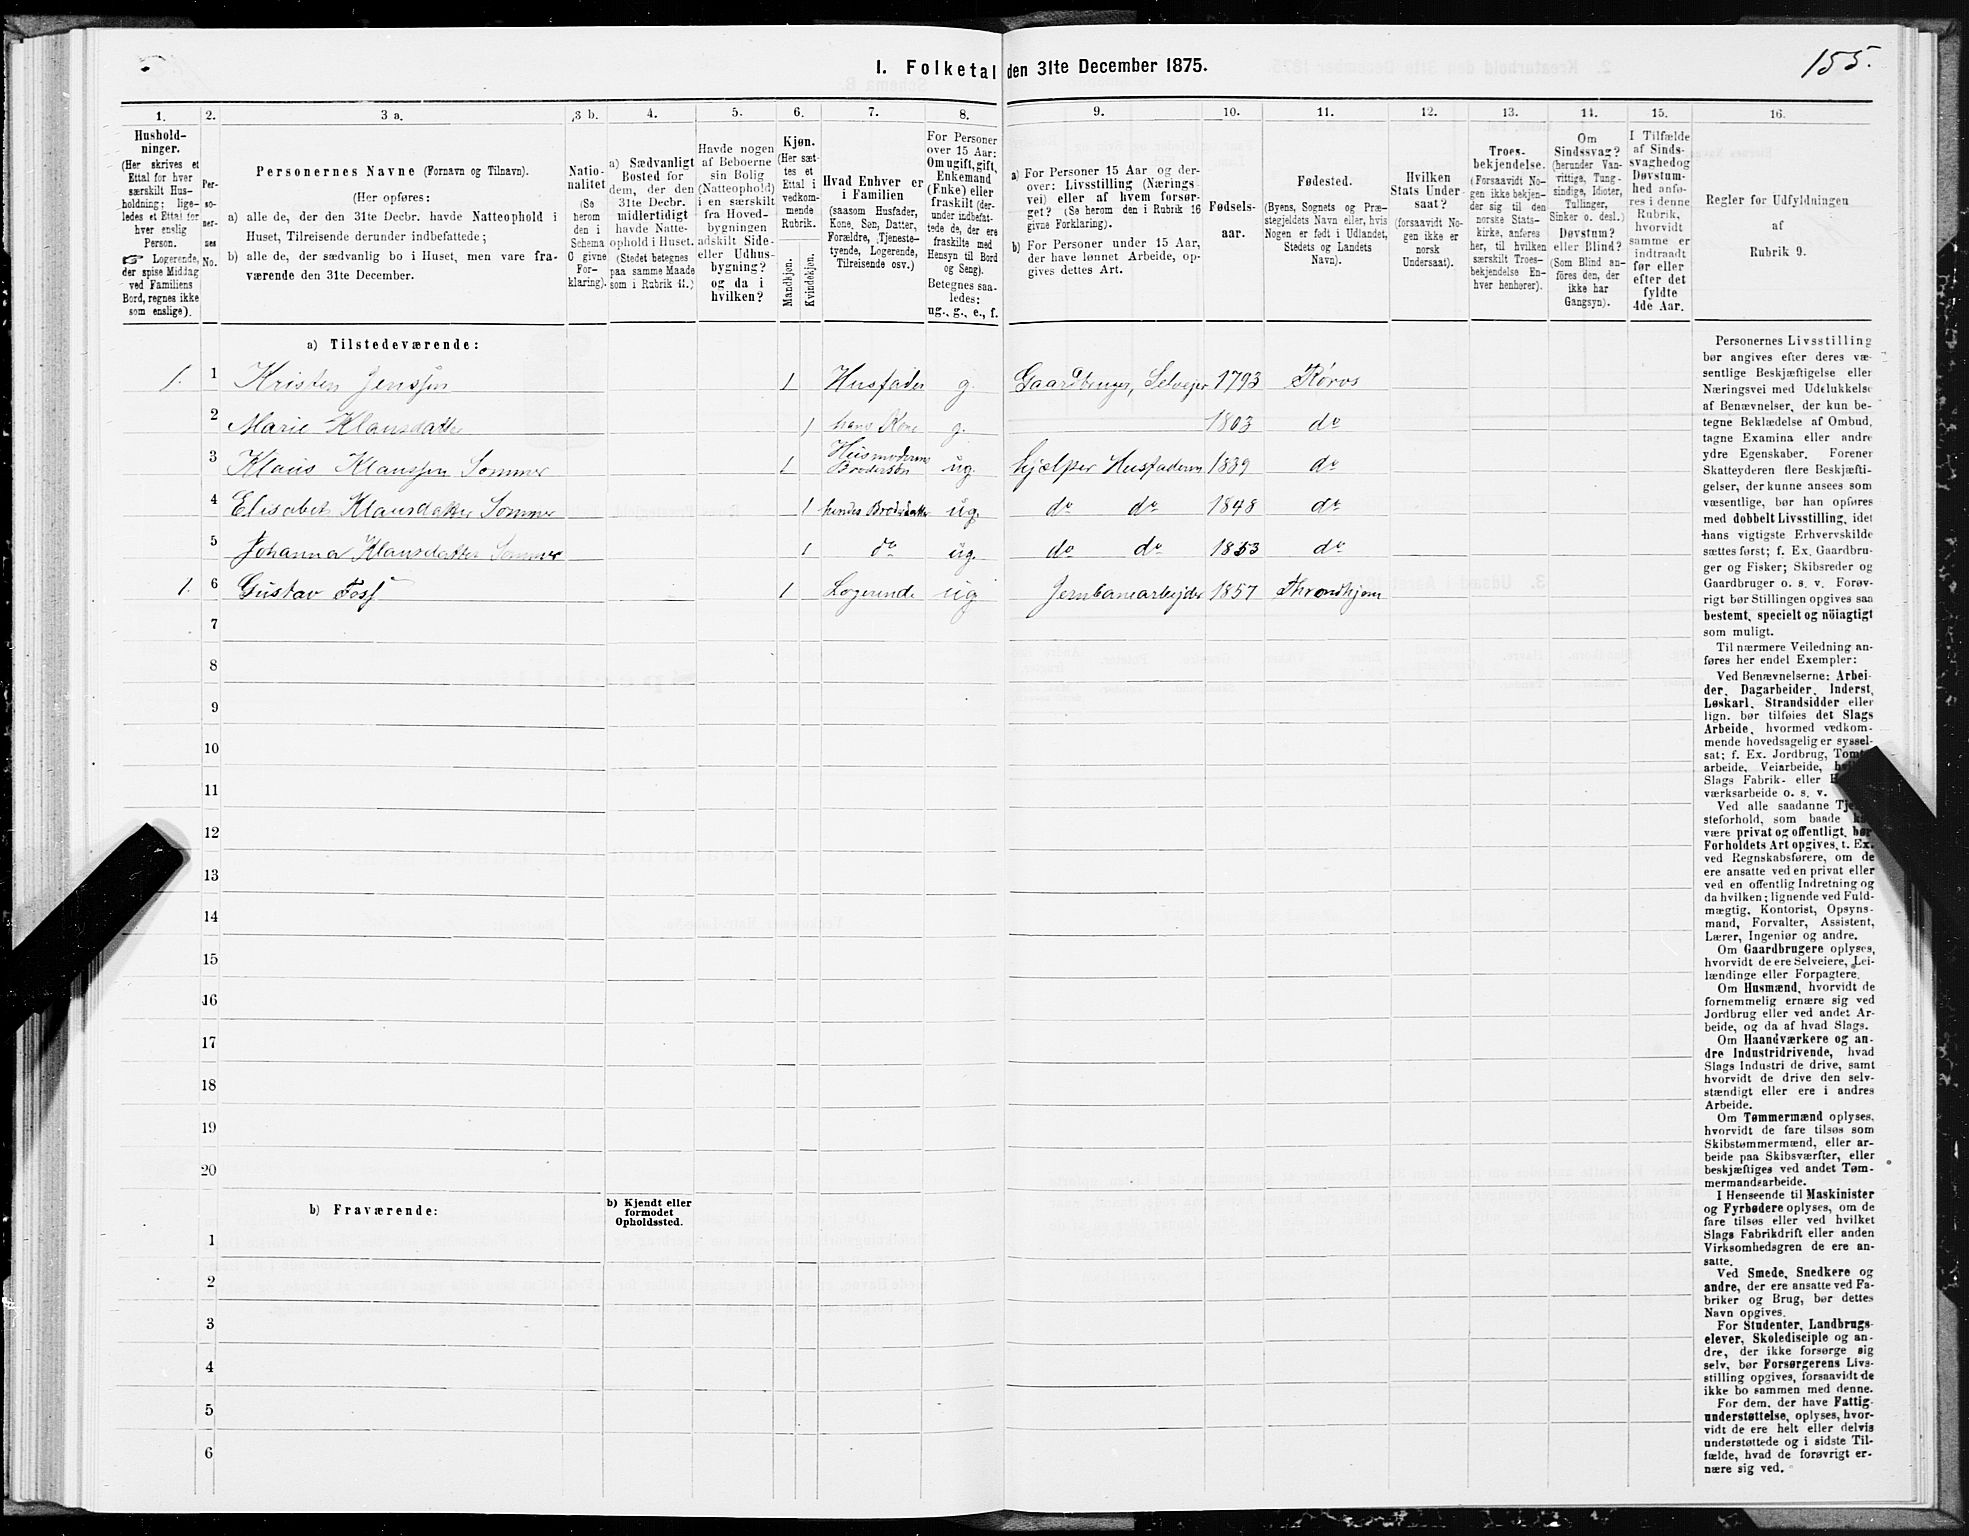 1. Folketal den 31te December 1875.
155.
1.
2.
3 a.
3 b.
4.
5.
6.
7.
8.
9.
10.
11.
12.
13.
14.
15.
16.
Hushold-
ninger.
(Her skrives et
Ettal for hver
særskilt Hus-
holdning; lige-
ledes et Ettal for
hver enslig
Person.
☞ Logerende,
der spise Middag
ved Familiens
Bord, regnes ikke
som enslige).
Per-
so-
ner-
nes
No.
Personernes Navne (Fornavn og Tilnavn).
(Her opføres:
a) alle de, der den 31te Decbr. havde Natteophold i
Huset, Tilreisende derunder indbefattede;
b) alle de, der sædvanlig bo i Huset, men vare fra-
værende den 31te December.
Natio-
nalitet
(Se
herom
den i
Schema
C givne
For-
klaring).
a) Sædvanligt
Bosted for
dem, der den
31te Decbr.
midlertidigt
havde Natte-
ophold i Huset.
(Stedet betegnes
paa samme Maade
som i Rubrik 11.)
Havde nogen
af Beboerne
sin Bolig
(Natteophold)
i en særskilt
fra Hoved-
bygningen
adskilt Side-
eller Udhus-
bygning?
og da i
hvilken?
Kjøn.
(Her sæt-
tes et
Ettal i
vedkom-
mende
Rubrik.
Mandkjøn.
Kvindekjøn.
Hvad Enhver er
i Familien
(saasom Husfader,
Kone, Søn, Datter,
Forældre, Tjeneste-
tyende, Logerende,
Tilreisende osv.)
For Personer
over 15 Aar:
Om ugift, gift,
Enkemand
(Enke) eller
fraskilt (der-
under indbefat-
tede de, der ere
fraskilte med
Hensyn til Bord
og Seng).
Betegnes saa-
ledes:
ug., g., e., f.
a) For Personer 15 Aar og der-
over: Livsstilling (Nærings-
vei) eller af hvem forsør-
get? (Se herom den i Rubrik 16
givne Forklaring).
b) For Personer under 15 Aar,
der have lønnet Arbeide, op-
gives dettes Art.
Fødsels-
aar.
Fødested.
(Byens, Sognets og Præ-
stegjeldets Navn eller, hvis
Nogen er født i Udlandet,
Stedets og Landets
Navn).
Hvilken
Stats Under-
saat?
(forsaavidt No-
gen ikke er
norsk
Undersaat).
Troes-
bekjendelse.
(Forsaavidt No-
gen ikke bekjen-
der sig til den
norske Stats-
kirke, anføres
her, til hvilken
særskilt Troes-
bekjendelse En-
hver henhører).
Om
Sindssvag?
(herunder Van-
vittige, Tung-
sindige, Idioter,
Tullinger,
Sinker o. desl.)
Døvstum?
eller Blind?
(Som Blind an-
føres den, der
ikke har
Gangsyn).
I Tilfælde
af Sinds-
svaghed og
Døvstum-
hed anfø-
res i denne
Rubrik,
hvorvidt
samme er
indtraadt
før eller
efter det
fyldte
4de Aar.
Regler for Udfyldningen
af
Rubrik 9.
a) Tilstedeværende:
1. 1 Kristen Jenssen 1 Husfader g. Gaardbruger, Selvejer 1793 Røros
2 Marie Klausdatter 1 hans Kone g. 1803 do
3 Klaus Klaussen Sommer 1 Husmoderens Brodersøn ug. hjælper Husfaderen 1839 do
4 Elisabet Klausdatter Sommer 1 hendes Broderdatter ug. do do 1848 do
5 Johanna Klausdatter Sommer 1 do ug. do do 1853 do
1. 6 Gustav Foss 1 Logerende ug Jernbanearbejder 1857 Throndhjem
7
8
9
10
11
12
13
14
15
16
17
18
19
20
b) Fraværende:
b) Kjendt eller
formodet
Opholdssted.
1
2
3
4
5
6
Personernes Livsstilling
bør angives efter deres væ-
sentlige Beskjæftigelse eller
Næringsvei med Udelukkelse
af Benævnelser, der kun be-
tegne Beklædelse af Ombud,
tagne Examina eller andre
ydre Egenskaber. Forener
Skatteyderen flere Beskjæfti-
gelser, der kunne ansees som
væsentlige, bør han opføres
med dobbelt Livsstilling, idet
hans vigtigste Erhvervskilde
sættes først; f. Ex. Gaardbru-
ger og Fisker; Skibsreder og
Gaardbruger o. s. v. Forøv-
rigt bør Stillingen opgives saa
bestemt, specielt og nöiagtigt
som muligt.
Til nærmere Veiledning an-
føres her endel Exempler:
Ved Benævnelserne: Arbei-
der, Dagarbeider, Inderst,
Løskarl, Strandsidder eller
lign. bør tilføies det Slags
Arbeide, hvormed vedkom-
mende hovedsagelig er syssel-
sat; f. Ex. Jordbrug, Tomt-
arbeide, Veiarbeide,
Slags Fabrik- eller
værksarbeide o. s. v.
Ved alle saadanne
steforhold, som baade
være privat og offentligt, bør
Forholdets Art opgives, t. Ex.
ved Regnskabsførere, om de
ere ansatte ved en privat eller
ved en offentlig Indretning og
da hvilken; lignende ved Fuld-
mægtig, Kontorist, Opsyns-
mand, Forvalter, Assistent,
Lærer, Ingeniør og andre.
Om Gaardbrugere oplyses,
hvorvidt de ere Selveiere, Lei-
lændinge eller Forpagtere.
Om Husmænd, hvorvidt de
fornemmelig ernære sig ved
Jordbrug eller ved andet Ar-
beide, og da af hvad Slags.
Om Haandværkere og an-
dre Industridrivende, hvad
Slags Industri de drive, samt
hvorvidt de drive den selv-
stændigt eller ere i andres
Arbeide.
Om Tømmermænd oplyses,
hvorvidt de fare tilsøs som
Skibstømmermænd, eller ar-
beide paa Skibsværfter, eller
beskjæftiges ved andet Tøm-
mermandsarbeide.
I Henseende til Maskinister
og Fyrbødere oplyses, om de
fare tilsøs eller ved hvilket
Slags Fabrikdrift eller anden
Virksomhedsgren de ere an-
satte.
Ved Smede, Snedkere og
andre, der ere ansatte ved Fa-
briker og Brug, bør dettes
Navn opgives.
For Studenter, Landbrugs-
elever, Skoledisciple og an-
dre, der ikke forsørge sig
selv, bør Forsørgerens Livs-
stilling opgives, forsaavidt de
ikke bo sammen med denne.
For dem, der have Fattig-
understøttelse, oplyses, hvor-
vidt de ere helt eller delvis
understøttede og i sidste Til-
fælde, hvad de forøvrigt er-
nære sig ved.